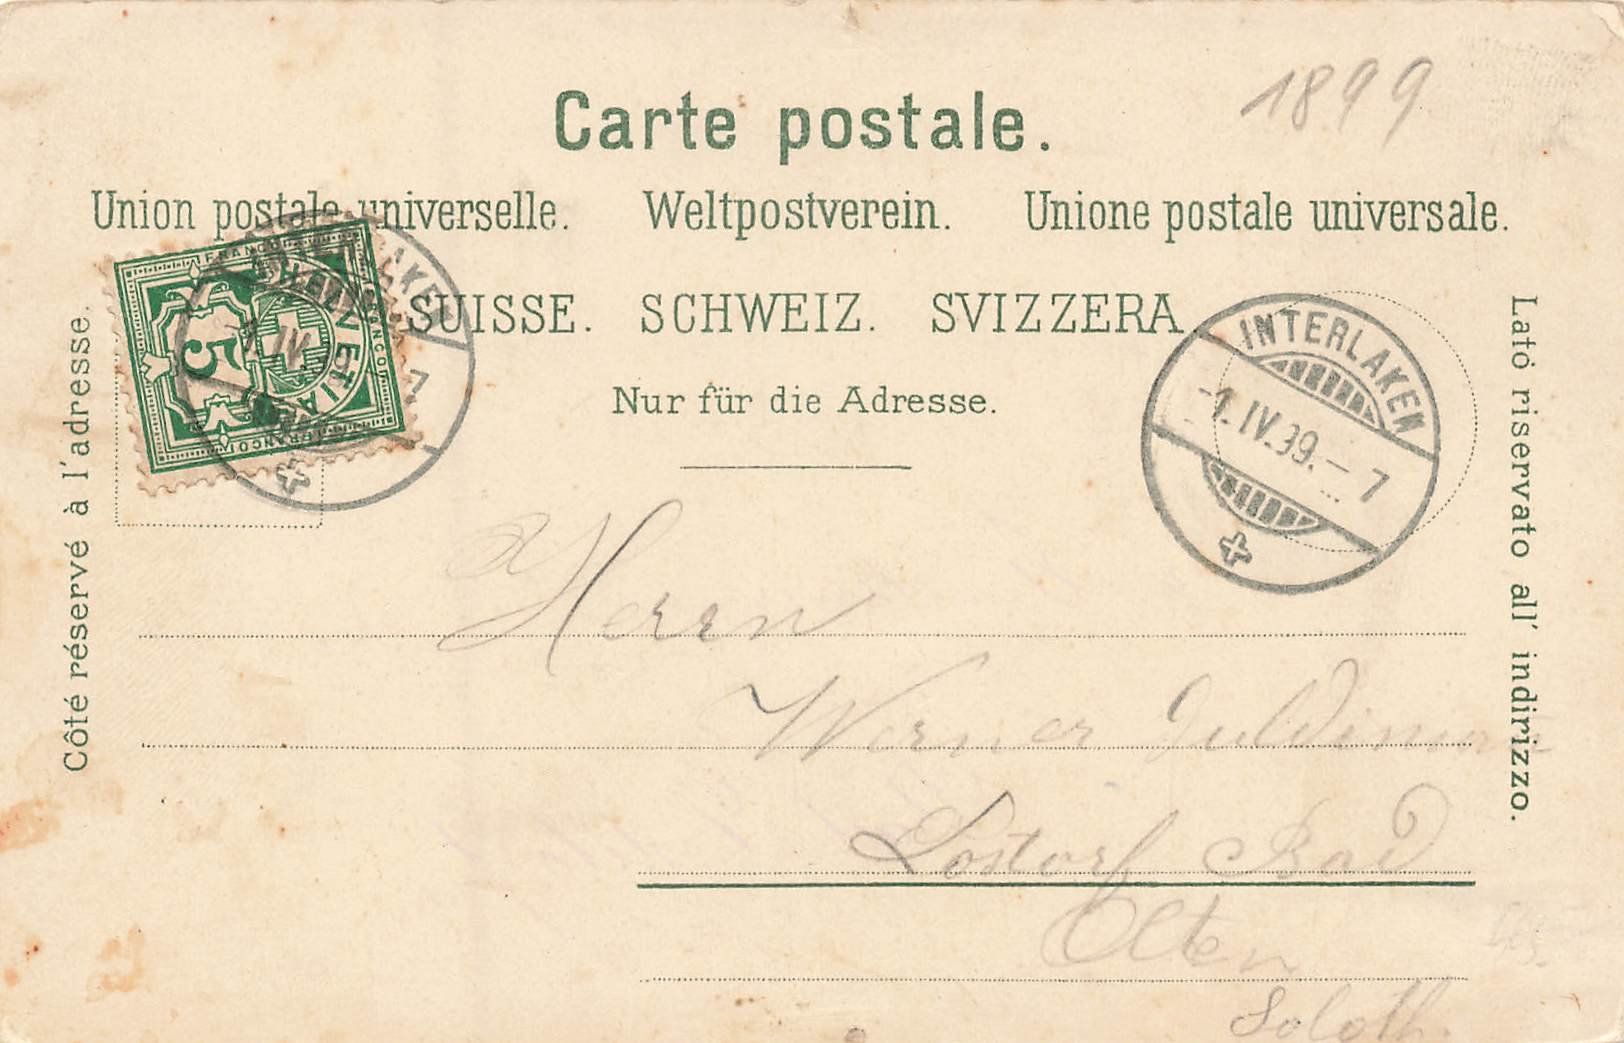 1899
Carte postale.
Union postale universelle. Weltpostverein. Unione postale universale.
SUISSE. SCHWEIZ. SVIZZERA.
Nur für die Adresse.
Côté réservé à l'adresse.
Lato riservato all' indirizzo.
FRANCO FRANCO FRANCO
HELVETIA
5
INTERLAKEN
-1.IV.
7
INTERLAKEN
-1.IV.99.-7
Herrn
Werner
Lostorf Bad
Olten
Soloth.